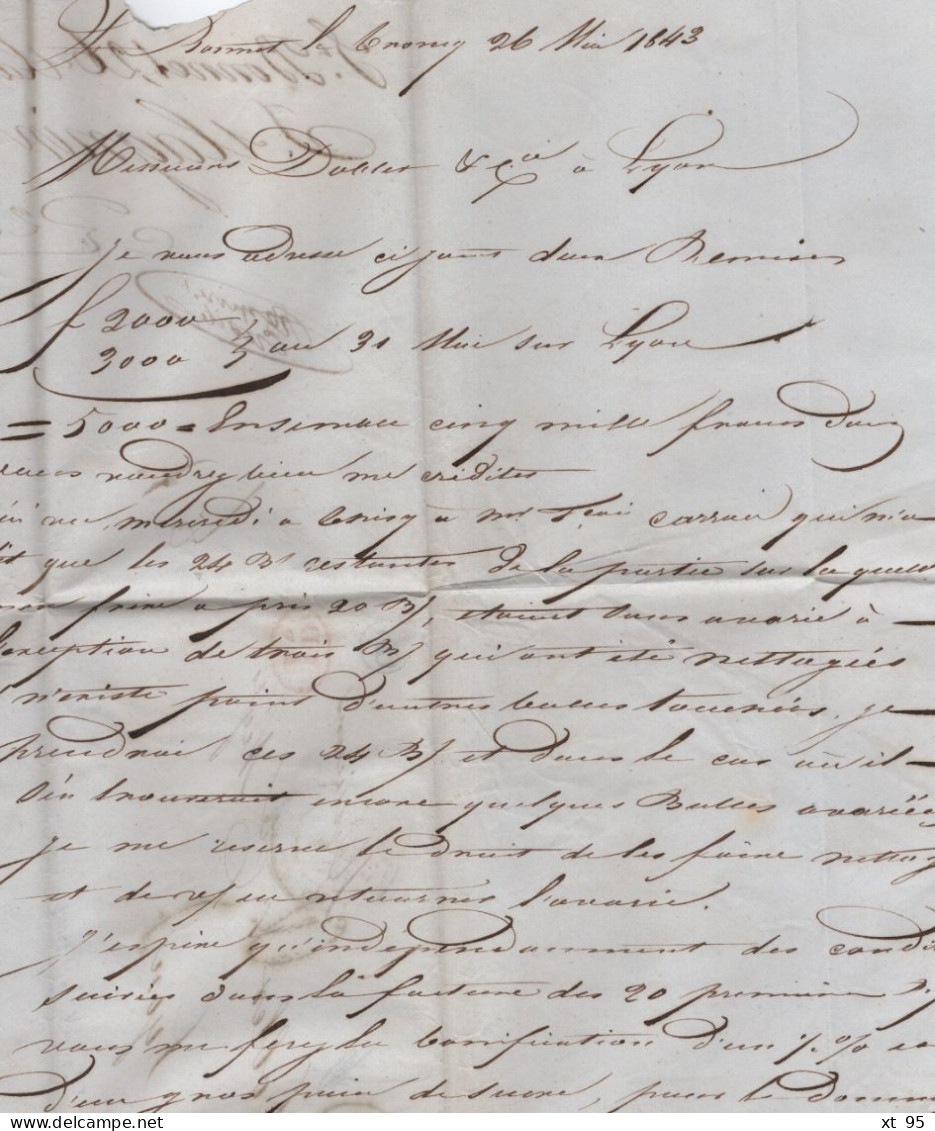 Bonnet le 26 Mai 1843
Messieurs Dolder & Cie à Lyon
Je vous adresse ci joint deux Remises
f 2000
3000 } au 31 Mai sur Lyon
= 5000 = Ensemble cinq mille francs dont
vous voudrez bien me créditer
vu mercredi a à Mr qui m'a
dit que les 24 Bs restantes de la partie sur laquelle
mon frère a pris 20 B/, étaient sans avarie à
l'exception de trois B/ qui ont été nettoyées
n'existe point d'autres balles tarées, je
prendrai ces 24 B/ et dans le cas où il
s'en trouverait encore quelques Balles avariées
je me reserve le droit de les faire nettoy
et de vous en retourner l'avarie.
J'espère qu'indépendamment des condit
suivies dans la facture des 20 premières
vous me ferez la bonification d'un %
d'un gros pain de sucre, pour le domm
xt 95